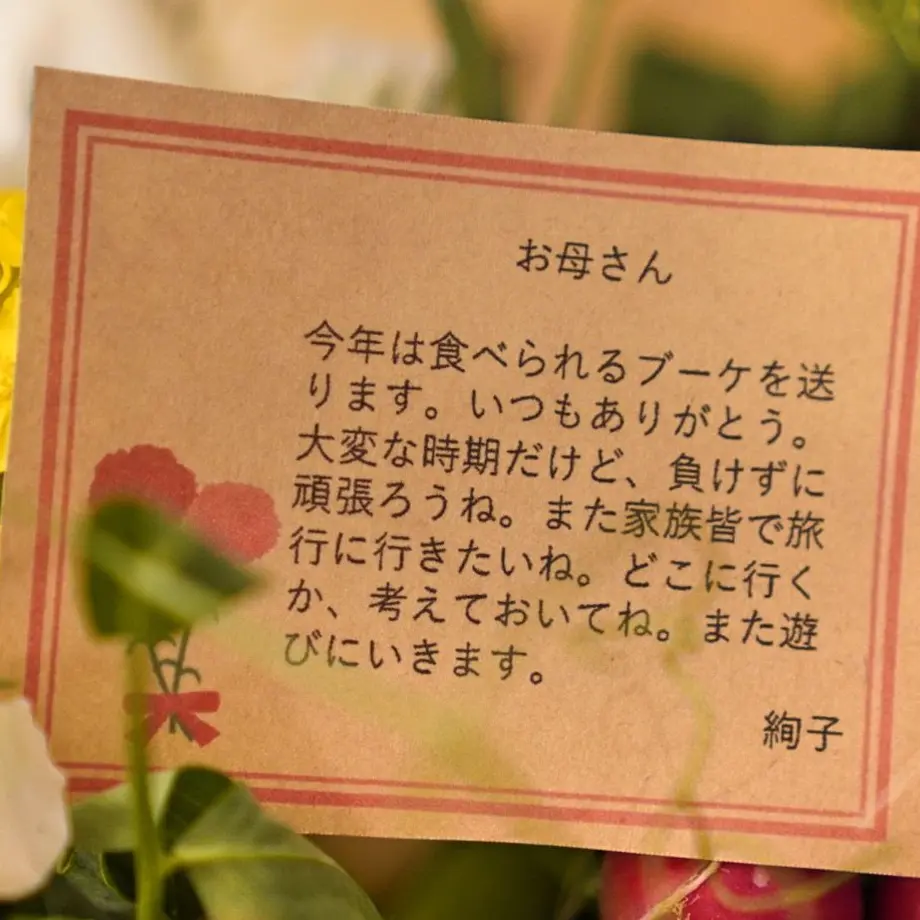 お母さん
今年は食べられるブーケを送
ります。いつもありがとう。
大変な時期だけど、負けずに
頑張ろうね。また家族皆で旅
行に行きたいね。どこに行く
か、考えておいてね。また遊
びにいきます。
絢子